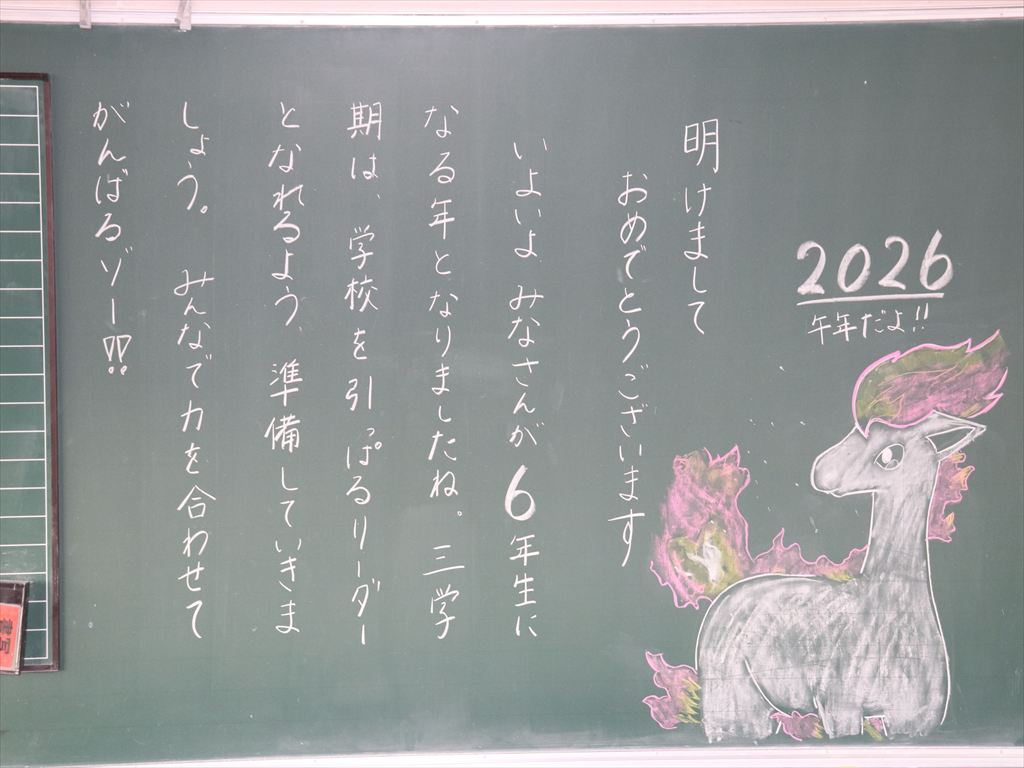 2026
午年だよ!!
明けまして
おめでとうございます
いよいよ、みなさんが6年生に
なる年となりましたね。三学
期は、学校を引っぱるリーダー
となれるよう、準備していきま
しょう。 みんなで力を合わせて
がんばるゾー!!